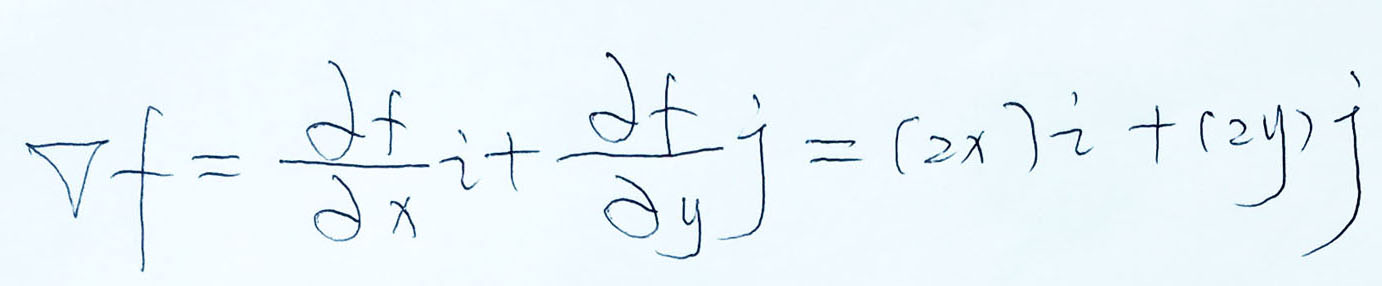 ∇f = ∂f/∂x i + ∂f/∂y j = (2x) i + (2y) j